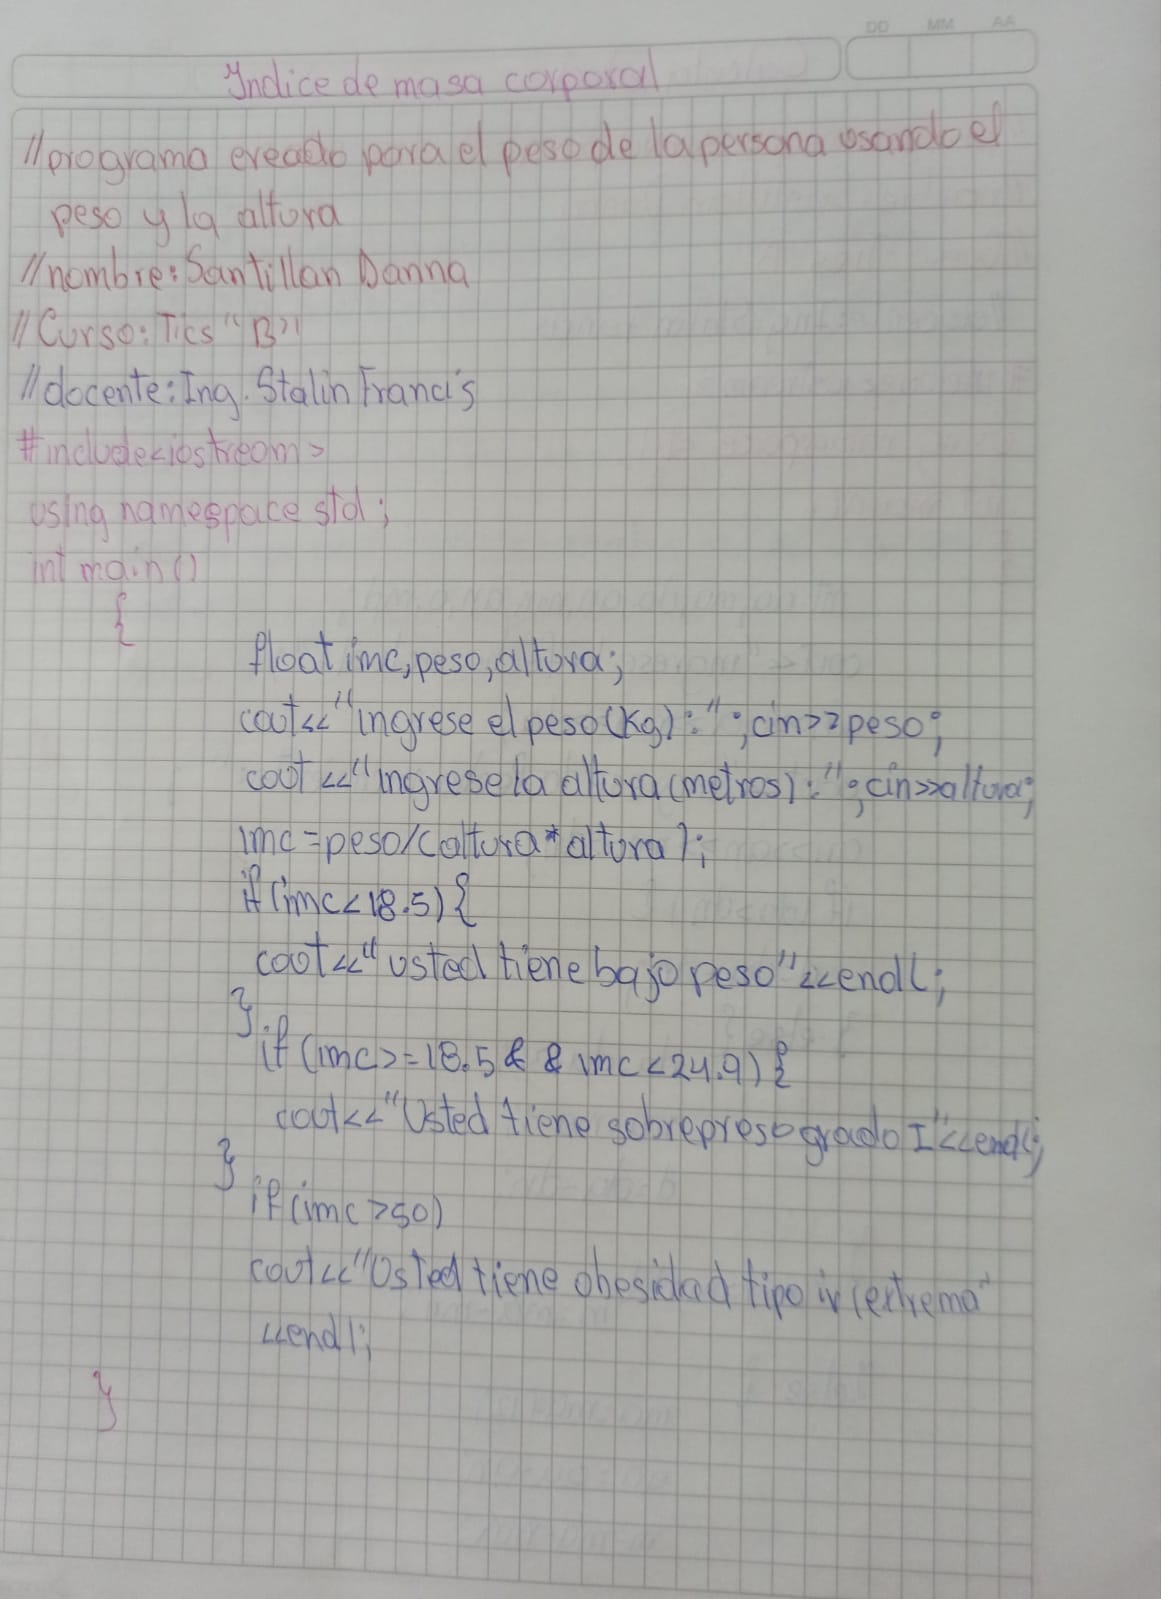 DD MM AA
Indice de masa corporal
//programa creado para el peso de la persona usando el
peso y la altura
//nombre: Santillan Danna
//Curso: Tics "B"
//docente: Ing. Stalin Francis
#include<iostream>
using namespace std;
int main()
{
float imc, peso, altura;
cout<<"ingrese el peso (Kg): "; cin>>peso;
cout<<"ingrese la altura (metros): "; cin>>altura;
imc=peso/(altura*altura);
if (imc<18.5){
cout<<"usted tiene bajo peso"<<endl;
}
if (imc>=18.5 && imc<24.9){
cout<<"Usted tiene sobrepreso grado I"<<endl;
}
if (imc>50)
cout<<"Usted tiene obesidad tipo iv (extrema"
<<endl;
}